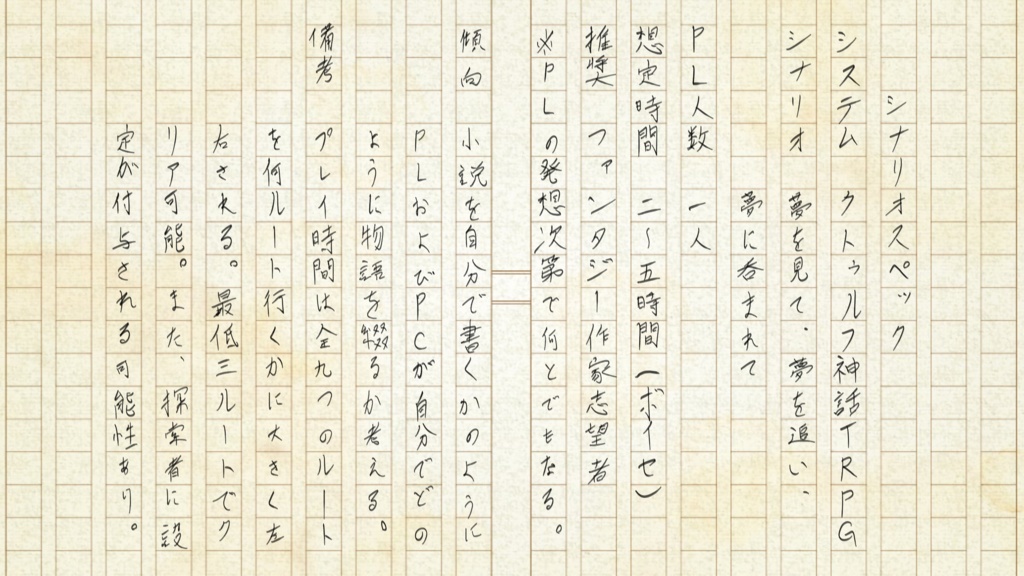 シナリオスペック
システム　クトゥルフ神話TRPG
シナリオ　夢を見て、夢を追い、
夢に呑まれて
PL人数　一人
想定時間　二～五時間（ボイセ）
推奨　ファンタジー作家志望者
※PLの発想次第で何とでもなる。
傾向　小説を自分で書くかのように
PLおよびPCが自分でどの
ように物語を綴るか考える。
備考　プレイ時間は全九つのルート
を何ルート行くかに大きく左
右される。最低三ルートでク
リア可能。また、探索者に設
定が付与される可能性あり。